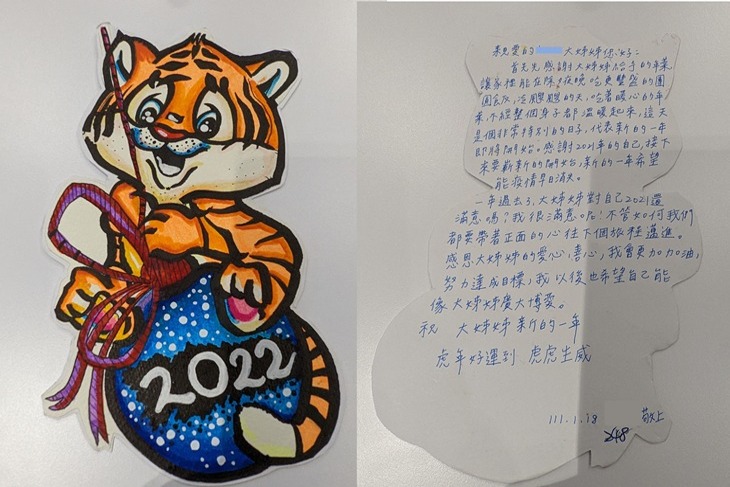 2022
親愛的 大姊姊你好:
首先先感謝大姊姊給予的年菜
讓家裡能在除夕夜晚吃更豐盛的團
圓飯,冷颼颼的天,吃著暖心的年
菜不經整個身子都溫暖起來,這天
是個非常特別的日子,代表新的一年
即將開始。感謝2021年的自己,接下
來要嶄新的開始,新的一年希望
能疫情早日消失。
一年過去了,大姊姊對自己2021還
滿意嗎?我很滿意呢!不管如何我們
都要帶著正面的心往下個旅程邁進。
感恩大姊姊的愛心,善心,我會更加加油,
努力達成目標,我以後也希望自己能
像大姊姊廣大博愛。
祝 大姊姊新的一年
虎年好運到 虎虎生威
111.1.18 敬上